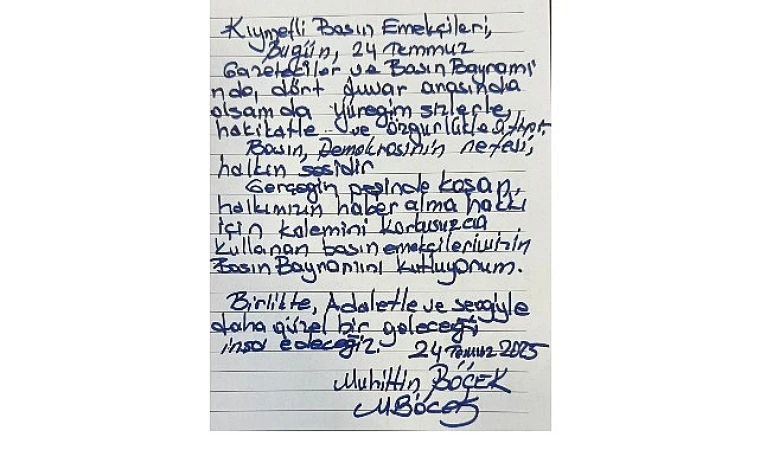 Kıymetli Basın Emekçileri,
Bugün, 24 Temmuz
Gazeteciler ve Basın Bayramı
nda, dört duvar arasında
olsam da yüreğim sizlerle,
hakikatle ve özgürlükle atıyor.
Basın, Demokrasinin nefesi,
halkın sesidir
Gerçeğin peşinde koşan,
halkımızın haber alma hakkı
için kalemini korkusuzca
kullanan basın emekçilerimizin
Basın Bayramını kutluyorum.
Birlikte, Adaletle ve sevgiyle
daha güzel bir geleceği
inşa edeceğiz. 24 Temmuz 2025
Muhittin BÖCEK
M.Böcek